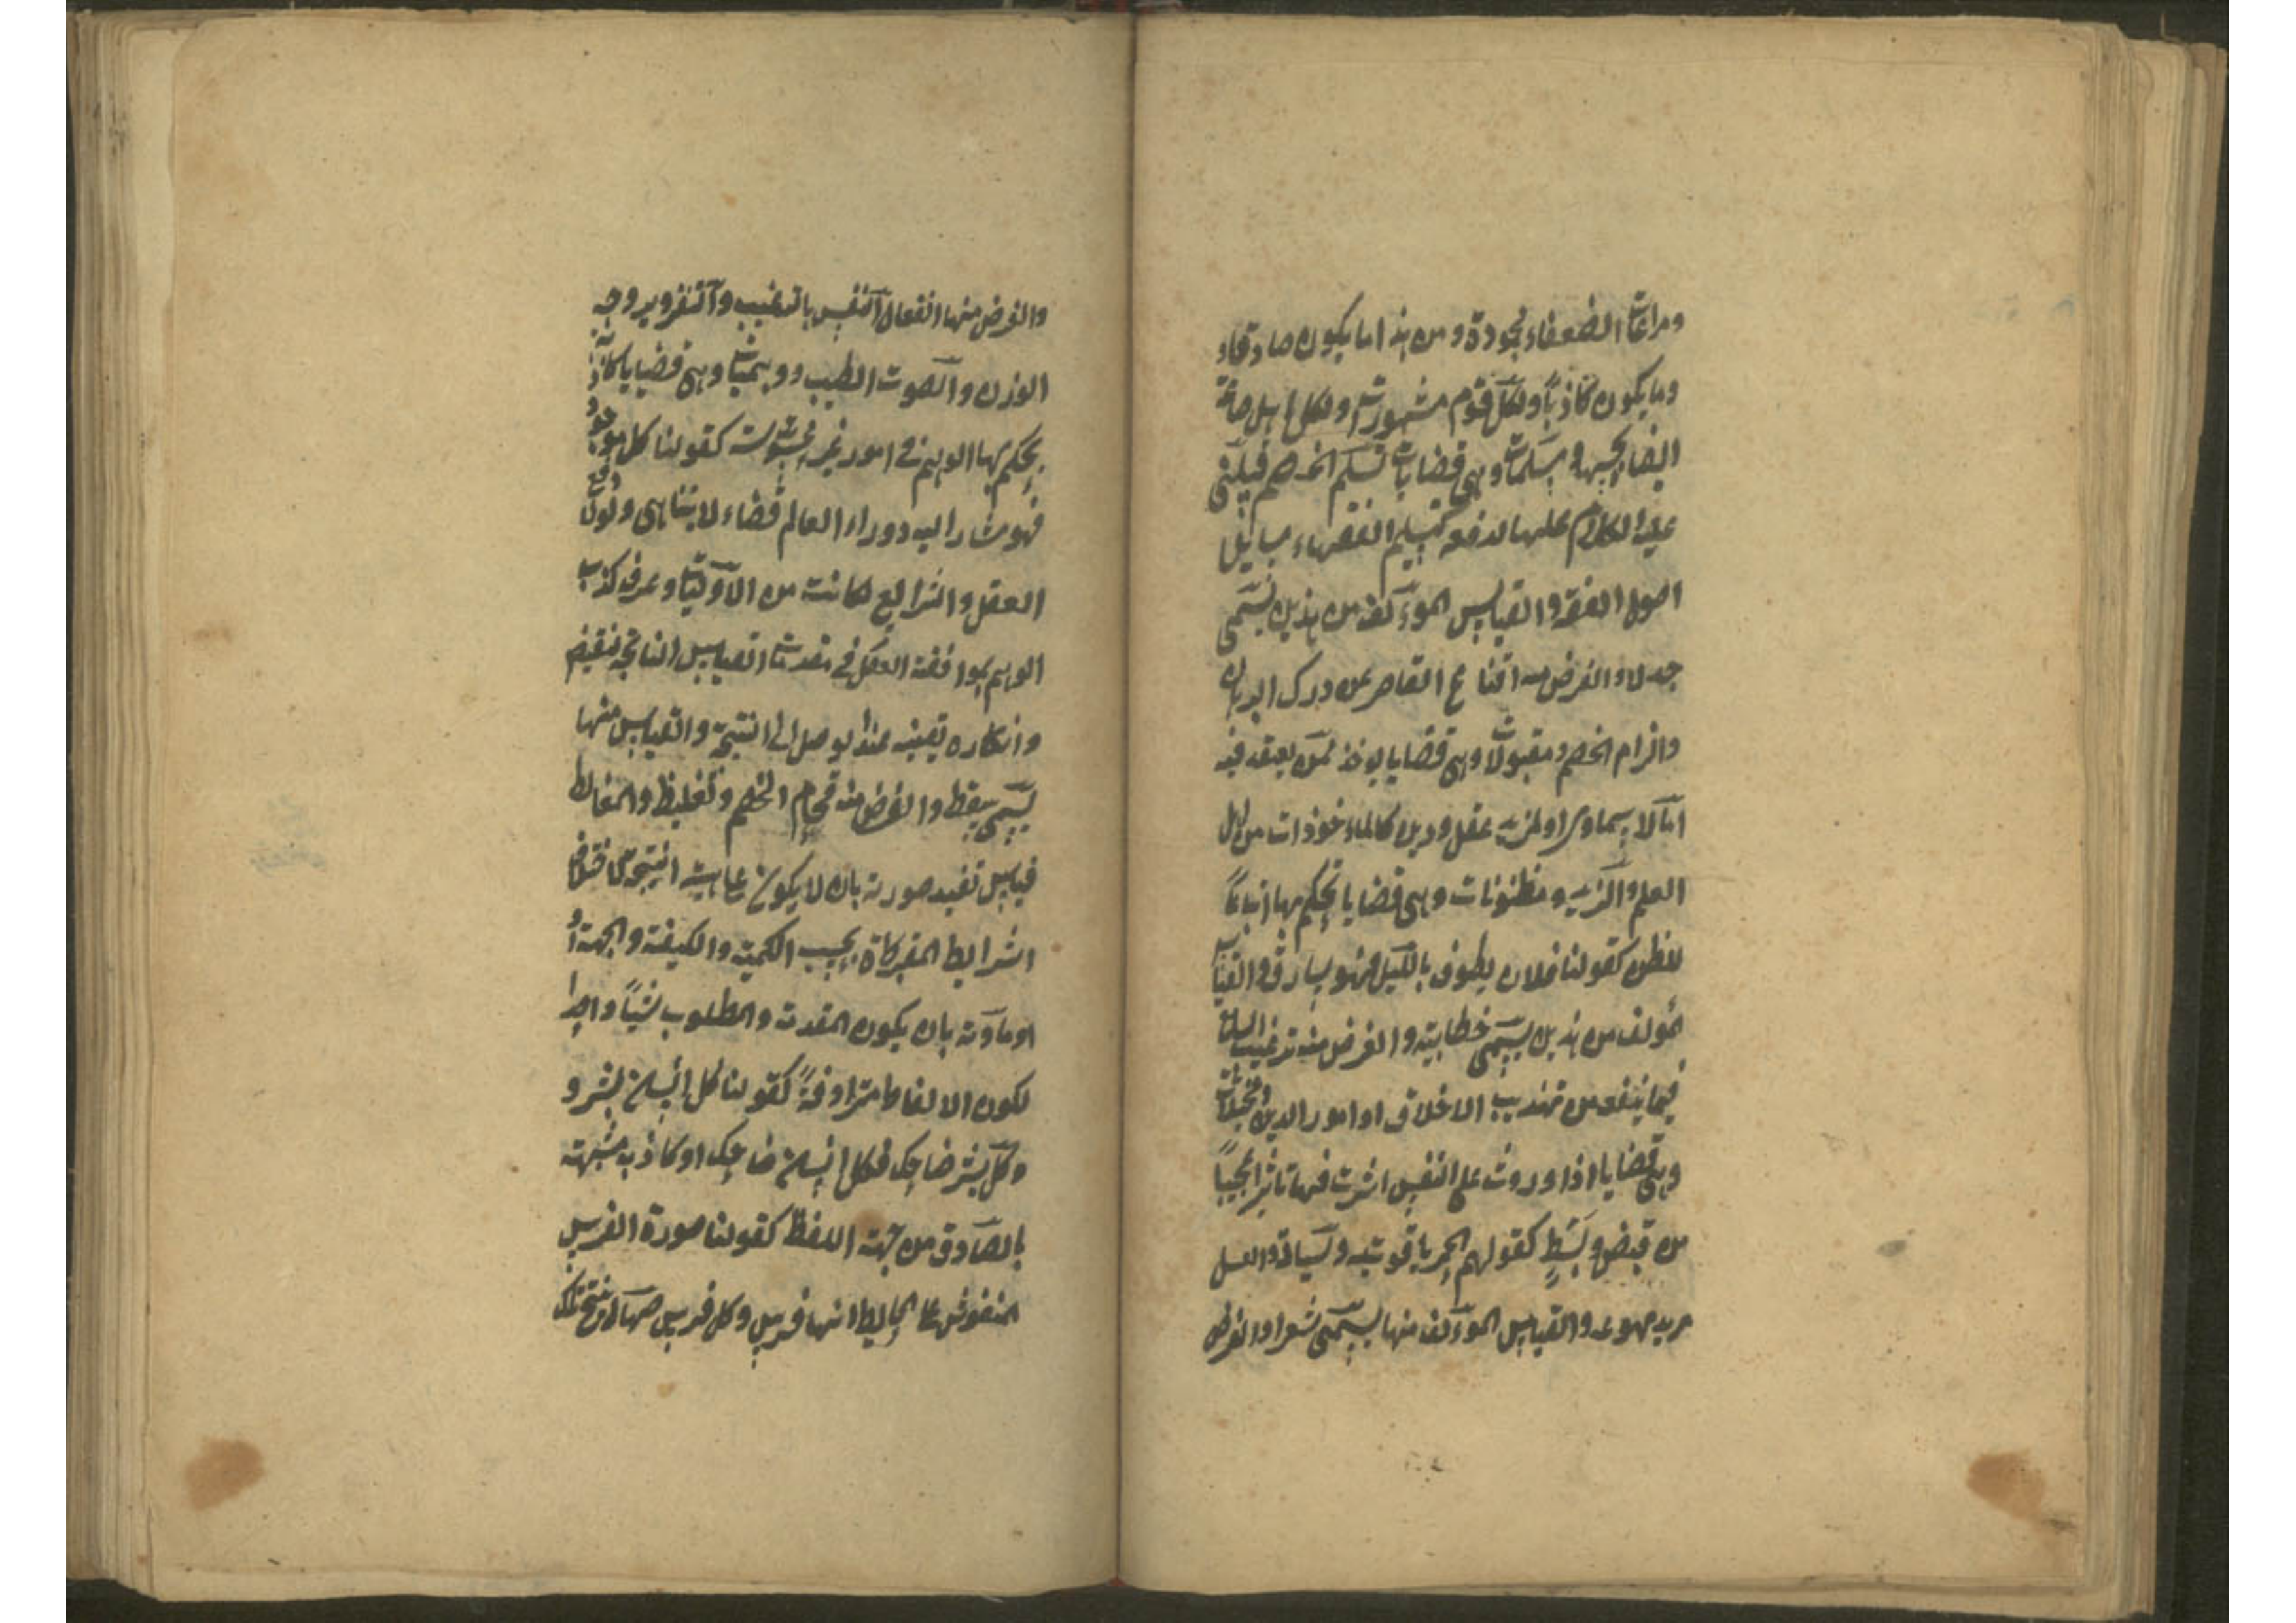 ومراعات الضعفاء محمودة ومن هذا ما يكون صادقاء
وما يكون كاذباً ولكل قوم مشهورات ولكل اهل صناعة
ايضا بحسبها ومسلمات وهى قضايات تسلم الخصم فيبتنى
عليه الكلام عليها لدفعه كتسليم الفقهاء مسايل
اصول الفقه والقياس المؤلف من هذين يسمى
جدلا والغرض منه اقناع القاصر عن درك البرهان
والزام الخصم ومقبولات وهى قضايا يوخذ ممن يعتقد فيه
اما لامر سماوى او لمزيد عقل ودين كالماءخوذات من اهل
العلم والزهد ومظنونات وهى قضايا يحكم بها اتباعاً
للظن كقولنا فلان يطوف بالليل فهو سارق والقياس
المولف من هذين يسمى خطابية والغرض منه ترغيب السامع
فيما ينفعه من تهذيب الاخلاق او امور الدين ومخيلات
وهى قضايا اذا وردت على النفس اثرت فيها تاثيرا عجيباً
من قبض وبسط كقولهم الخمر ياقوتية سيالة والعسل
مرة مهوعة والقياس المؤلف منها يسمى شعرا والغرض
والغرض منها انفعال النفس بالترغيب والتنفر ويروجه
الوزن والصوت الطيب ووهميات وهى قضايا كاذبة
يحكم بها الوهم فى امور غير محسوسة كقولنا كل موجود
فهو مشار اليه ووراء العالم فضاء لا يتناهى ولولا دفع
العقل والشرايع لكانت من الاوليات وعرف كذب
الوهم بموافقة العقل فى مقدمات القياس الناتجة لنقيض
وانكاره تعينه عند الوصل الى النتيجة والقياس منها
يسمى سفسطة والغرض منه افحام الخصم وتغليطه والمغالطة
قياس تفسد صورته بان لا يكون على هيئة منتجة لاختلال
شرايط المعتبرة بحسب الكمية والكيفية والجهة او
او مادته بان يكون المقدمة والمطلوب شيئاً واحدا
لكون الالفاظ مترادفةً كقولنا كل انسان بشر و
وكل بشر ضاحك فكل انسان ضاحك او كاذبة شبيهة
بالصادق من جهة اللفظ كقولنا صورة الفرس
المنقوش على الحايط انها فرس وكل فرس صهال ينتج تلك